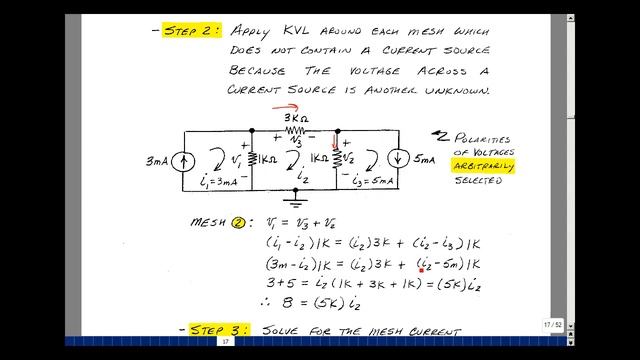 - STEP 2: APPLY KVL AROUND EACH MESH WHICH
DOES NOT CONTAIN A CURRENT SOURCE
BECAUSE THE VOLTAGE ACROSS A
CURRENT SOURCE IS ANOTHER UNKNOWN.
3KΩ
+ V3 -
3mA + V1 - 1KΩ i2 1KΩ + V2 - 5mA
i1=3mA i3=5mA
POLARITIES
OF VOLTAGES
ARBITRARILY
SELECTED
MESH 2: V1 = V3 + V2
(i1 - i2)1K = (i2)3K + (i2 - i3)1K
(3m - i2)1K = (i2)3K + (i2 - 5m)1K
3+5 = i2(1K + 3K + 1K) = (5K)i2
∴ 8 = (5K)i2
- STEP 3: SOLVE FOR THE MESH CURRENT
17 / 52
17